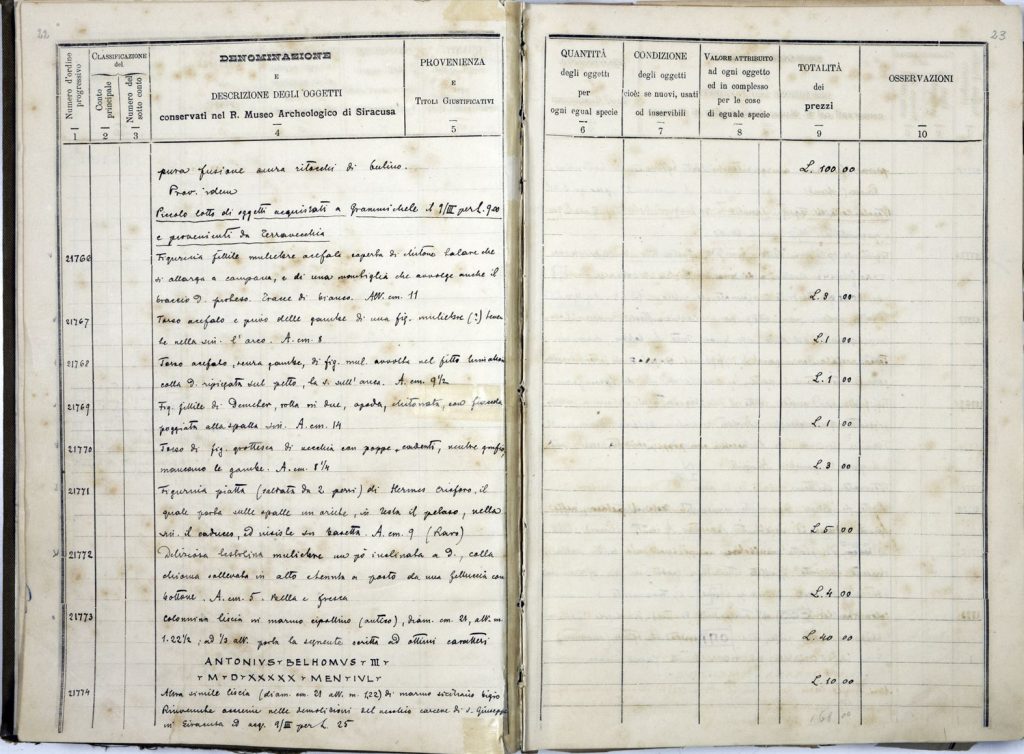 22
Numero d'ordine progressivo
Classificazione del
Conto principale
Numero del sotto conto
DENOMINAZIONE
E
DESCRIZIONE DEGLI OGGETTI
conservati nel R. Museo Archeologico di Siracusa
PROVENIENZA
E
Titoli Giustificativi
1 2 3 4 5
pura fusione senza ritocchi di bulino.
Prov. idem
Piccolo lotto di oggetti acquistati a Grammichele il 9/III per L. 9.00
e provenienti da Terravecchia
21766 Figurina fittile muliebre acefala coperta di chitone talare che
si allarga a campana, e di una che avvolge anche il
braccio d. proteso. Tracce di bianco. Alt. cm. 11
21767 Torso acefalo e privo delle gambe di una fig. muliebre (?)
nella sin. l'arco. A. cm. 8
21768 Torso acefalo, senza gambe, di fig. mul. avvolta nel fitto
colla d. ripiegata sul petto, la s. sull'anca. A. cm. 9 1/2
21769 Fig. fittile di Demeter, rotta in due, apoda, chitonata, con fiaccola
poggiata alla spalla sin. A. cm. 14
21770 Torso di fig. grottesca di vecchia con poppe cadenti, ventre gonfio,
mancano le gambe. A. cm. 8 1/4
21771 Figurina piatta (saldata da 2 pezzi) di Hermes Crioforo, il
quale porta sulle spalle un ariete, in testa il petaso, nella
sin. il caduceo, ed A. cm. 9 (Raro)
21772 Deliziosa testolina muliebre un pò inclinata a d., colla
chioma sollevata in alto a posto da una fettuccia con
bottone. A. cm. 5. Bella e fresca
21773 Colonnina liscia in marmo cipollino (antico), diam. cm. 21, alt. m.
1.22 1/2; ad 1/3 alt. porta la seguente scritta ad ottimi caratteri
ANTONIVS BELHOMVS III
M D XXXXX MEN IVL
21774 Altra simile liscia (diam. cm. 21 alt. m. 1,22) di marmo siciliano bigio
Rinvenute assieme nelle demolizioni del vecchio carcere di S. Giuseppe
in Siracusa ed acq. 9/III per L. 25
23
QUANTITÀ
degli oggetti
per
ogni egual specie
CONDIZIONE
degli oggetti
cioè: se nuovi, usati
od inservibili
Valore attribuito
ad ogni oggetto
ed in complesso
per le cose
di eguale specie
TOTALITÀ
dei
prezzi
OSSERVAZIONI
6 7 8 9 10
L. 100 00
L. 3 00
L. 1 00
L. 1 00
L. 1 00
L. 3 00
L. 5 00
L. 4 00
L. 40 00
L. 10 00